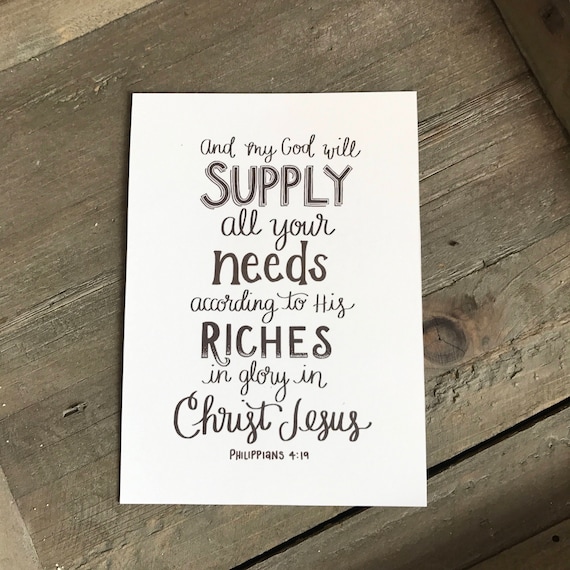 And my God will
SUPPLY
all your
needs
according to His
RICHES
in glory in
Christ Jesus
PHILIPPIANS 4:19